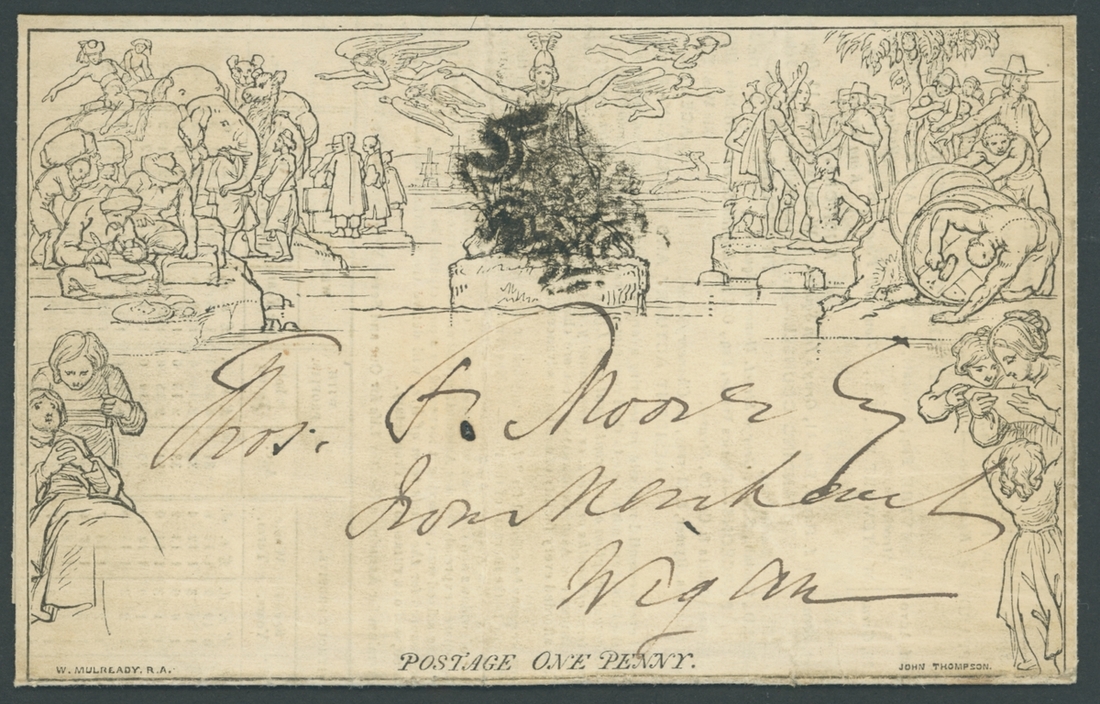 Thos. F. Moore Esq
Iron Merchant
Wigan
W. MULREADY. R.A.
POSTAGE ONE PENNY.
JOHN THOMPSON.